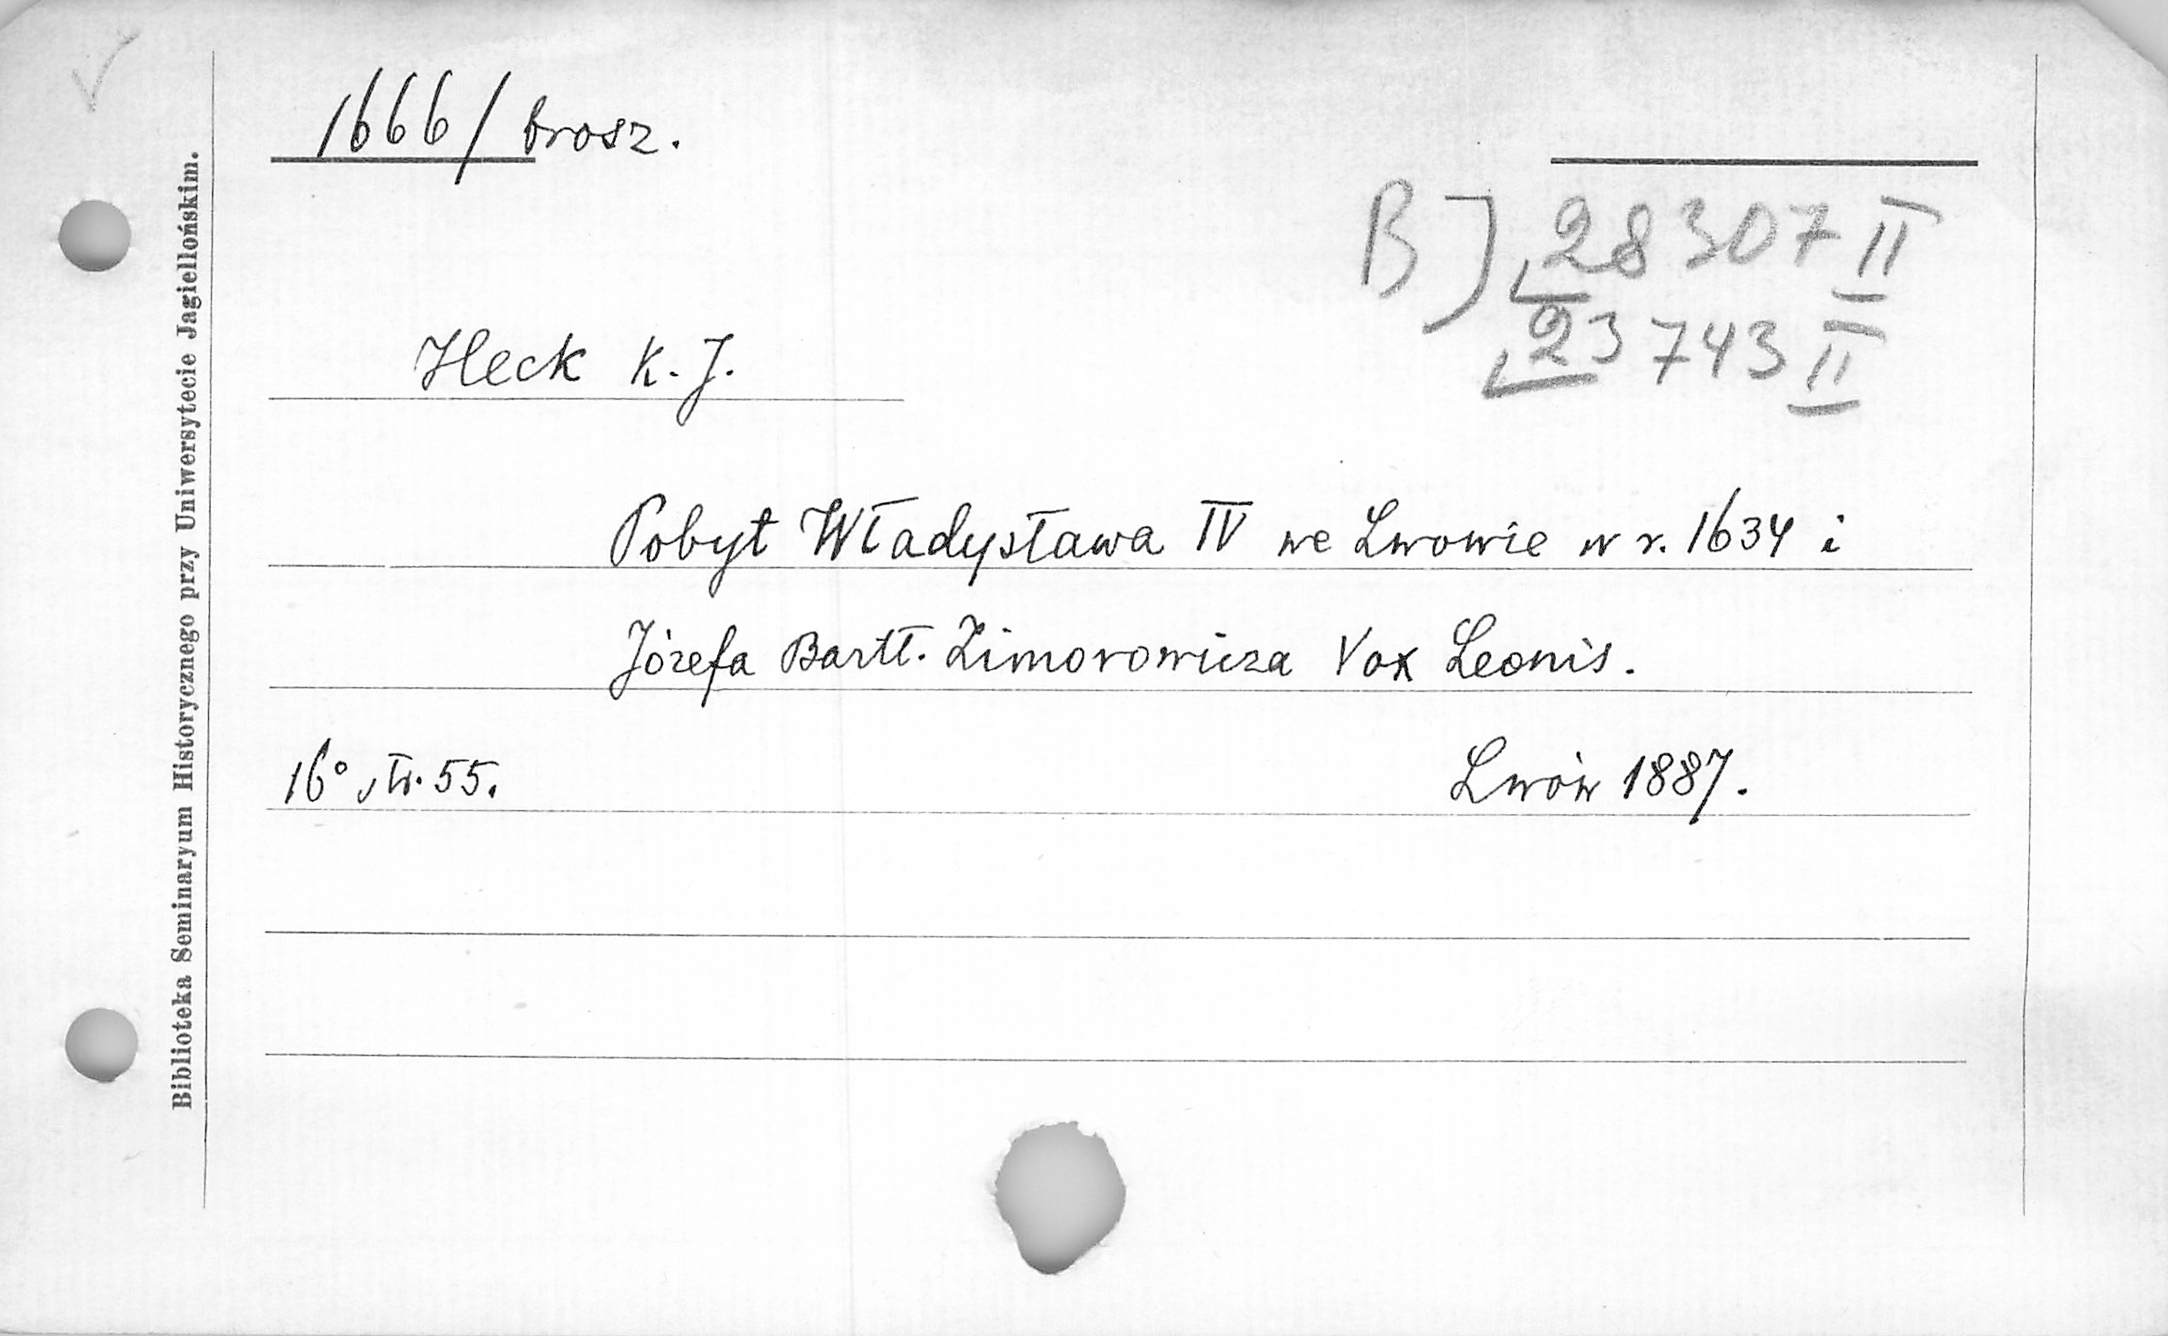 1666/brosz.
B] 28307 II
23743 II
Heck K. J.
Pobyt Władysława IV we Lwowie w r. 1634 i
Józefa Bartł. Zimorowicza Vox Leonis.
16° str. 55.
Lwów 1887.
Biblioteka Seminaryum Historycznego przy Uniwersytecie Jagiellońskim.